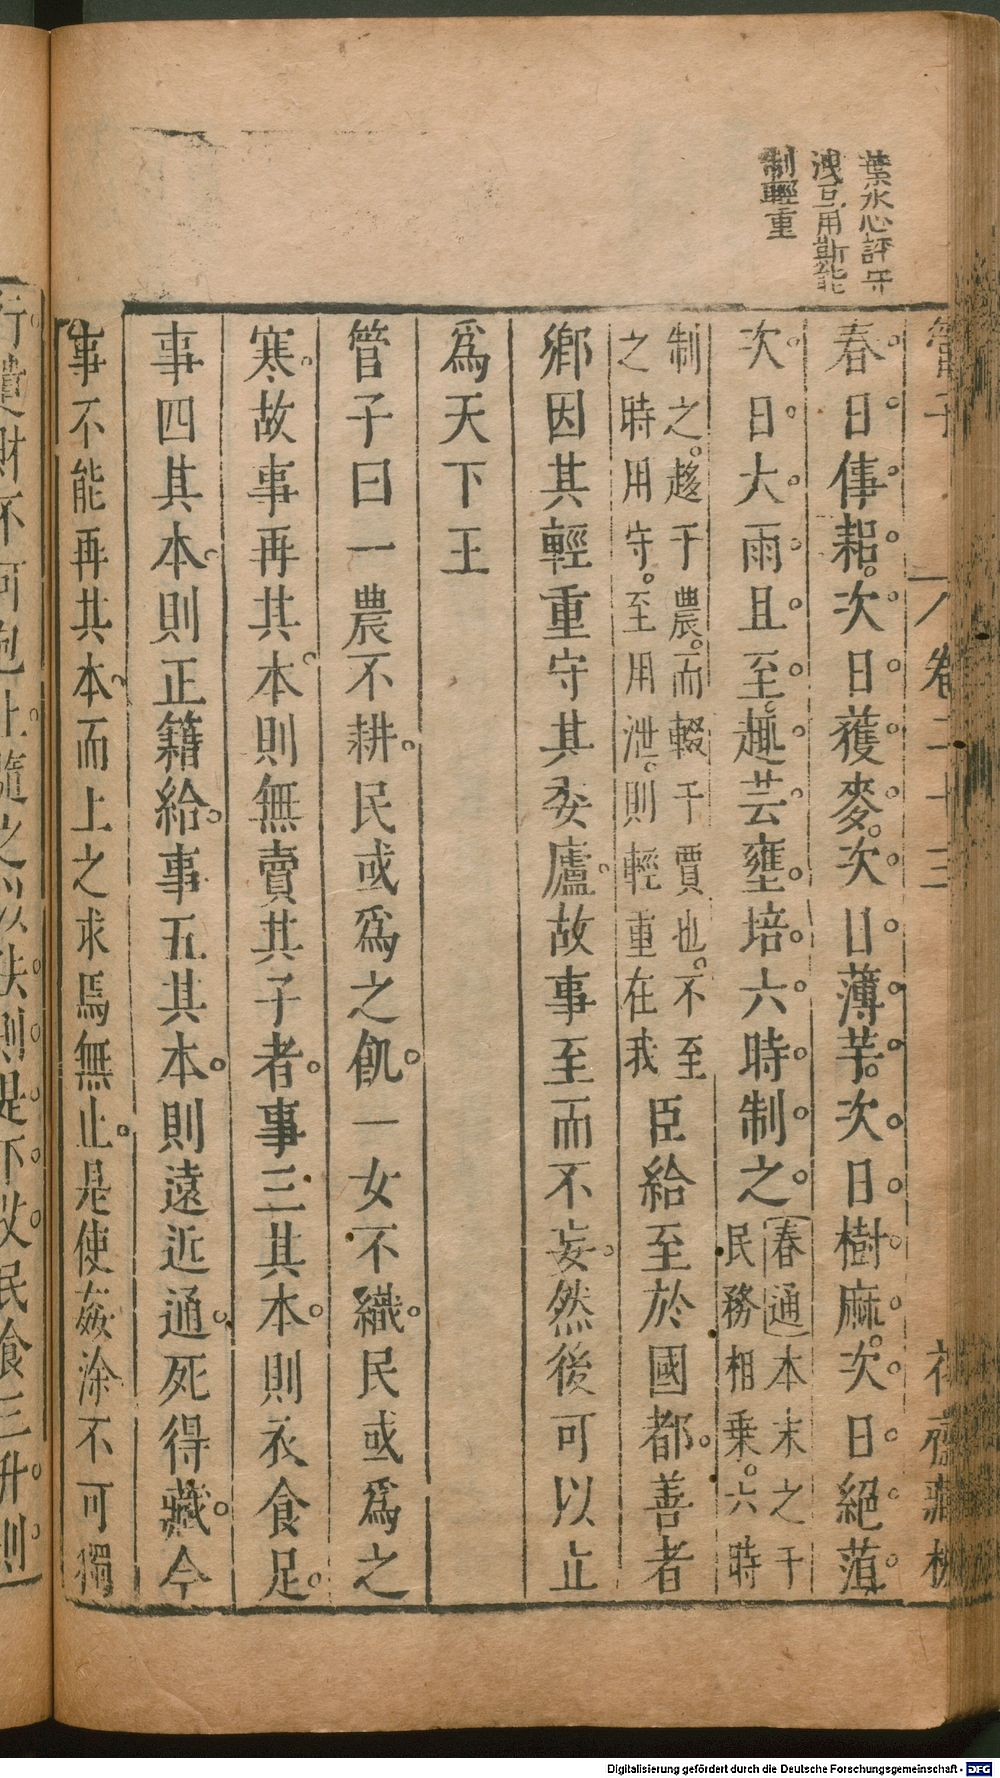 葉水心評守
洩互用斯能
制輕重
管子
卷二十三
春日倳耜。次日獲麥。次日薄芋。次日樹麻。次日絕菹。
次日大雨且至。趣芸壅培六時制之。春通本末之于
民務相乘。六時
制之。趍于農。而輟于賈也。不至
之時用守。至用泄。則輕重在我
臣給至於國都。善者
鄉因其輕重守其委廬。故事至而不妄。然後可以立
爲天下王
管子曰一農不耕。民或爲之飢。一女不織。民或爲之
寒。故事再其本。則無賣其子者。事三其本。則衣食足。
事四其本。則正籍給。事五其本。則遠近通。死得藏。今
事不能再其本。而上之求焉無止。是使姦涂不可獨
行遺財不可包止隨之以法則是下艾民食三升則
Digitalisierung gefördert durch die Deutsche Forschungsgemeinschaft - DFG